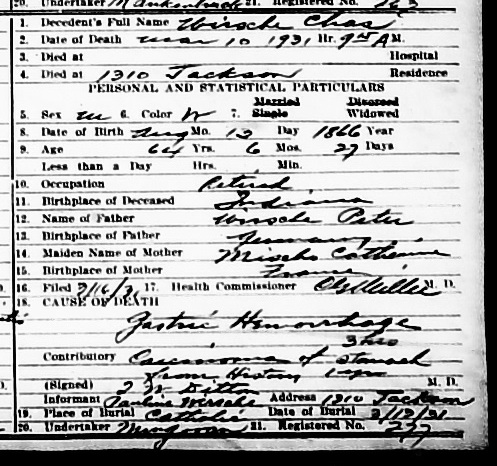 20. Undertaker 21. Registered No. 763
1. Decedent's Full Name Wirsche Chas
2. Date of Death Mar 10 1931 Hr. 9 A M.
3. Died at Hospital
4. Died at 1310 Jackson Residence
PERSONAL AND STATISTICAL PARTICULARS
Married Divorced
5. Sex m 6. Color W 7. Single Widowed
8. Date of Birth Aug Mo. 13 Day 1866 Year
9. Age 64 Yrs. 6 Mos. 27 Days
Less than a Day Hrs. Min.
10. Occupation Retired
11. Birthplace of Deceased Indiana
12. Name of Father Wirsche Peter
13. Birthplace of Father Germany
14. Maiden Name of Mother Mischo Catherine
15. Birthplace of Mother France
16. Filed 3/16/31 17. Health Commissioner M. D.
18. CAUSE OF DEATH
Gastric Hemorrhage
3 mo
Contributory Carcinoma of stomach
from History 1 yr
(Signed) M. D.
Informant Pauline Wirsche Address 1310 Jackson
19. Place of Burial Catholic Date of Burial 3/12/31
20. Undertaker 21. Registered No. 277